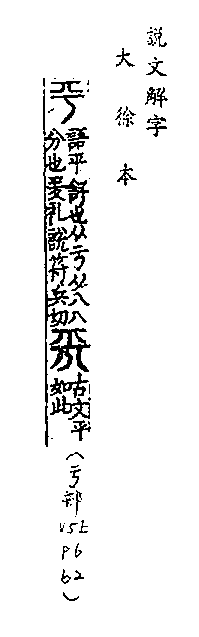 說文解字
大徐本
語平舒也从亏从八八
分也爰礼說符兵切
古文平
如此
(亏部
V5上
P6
62)